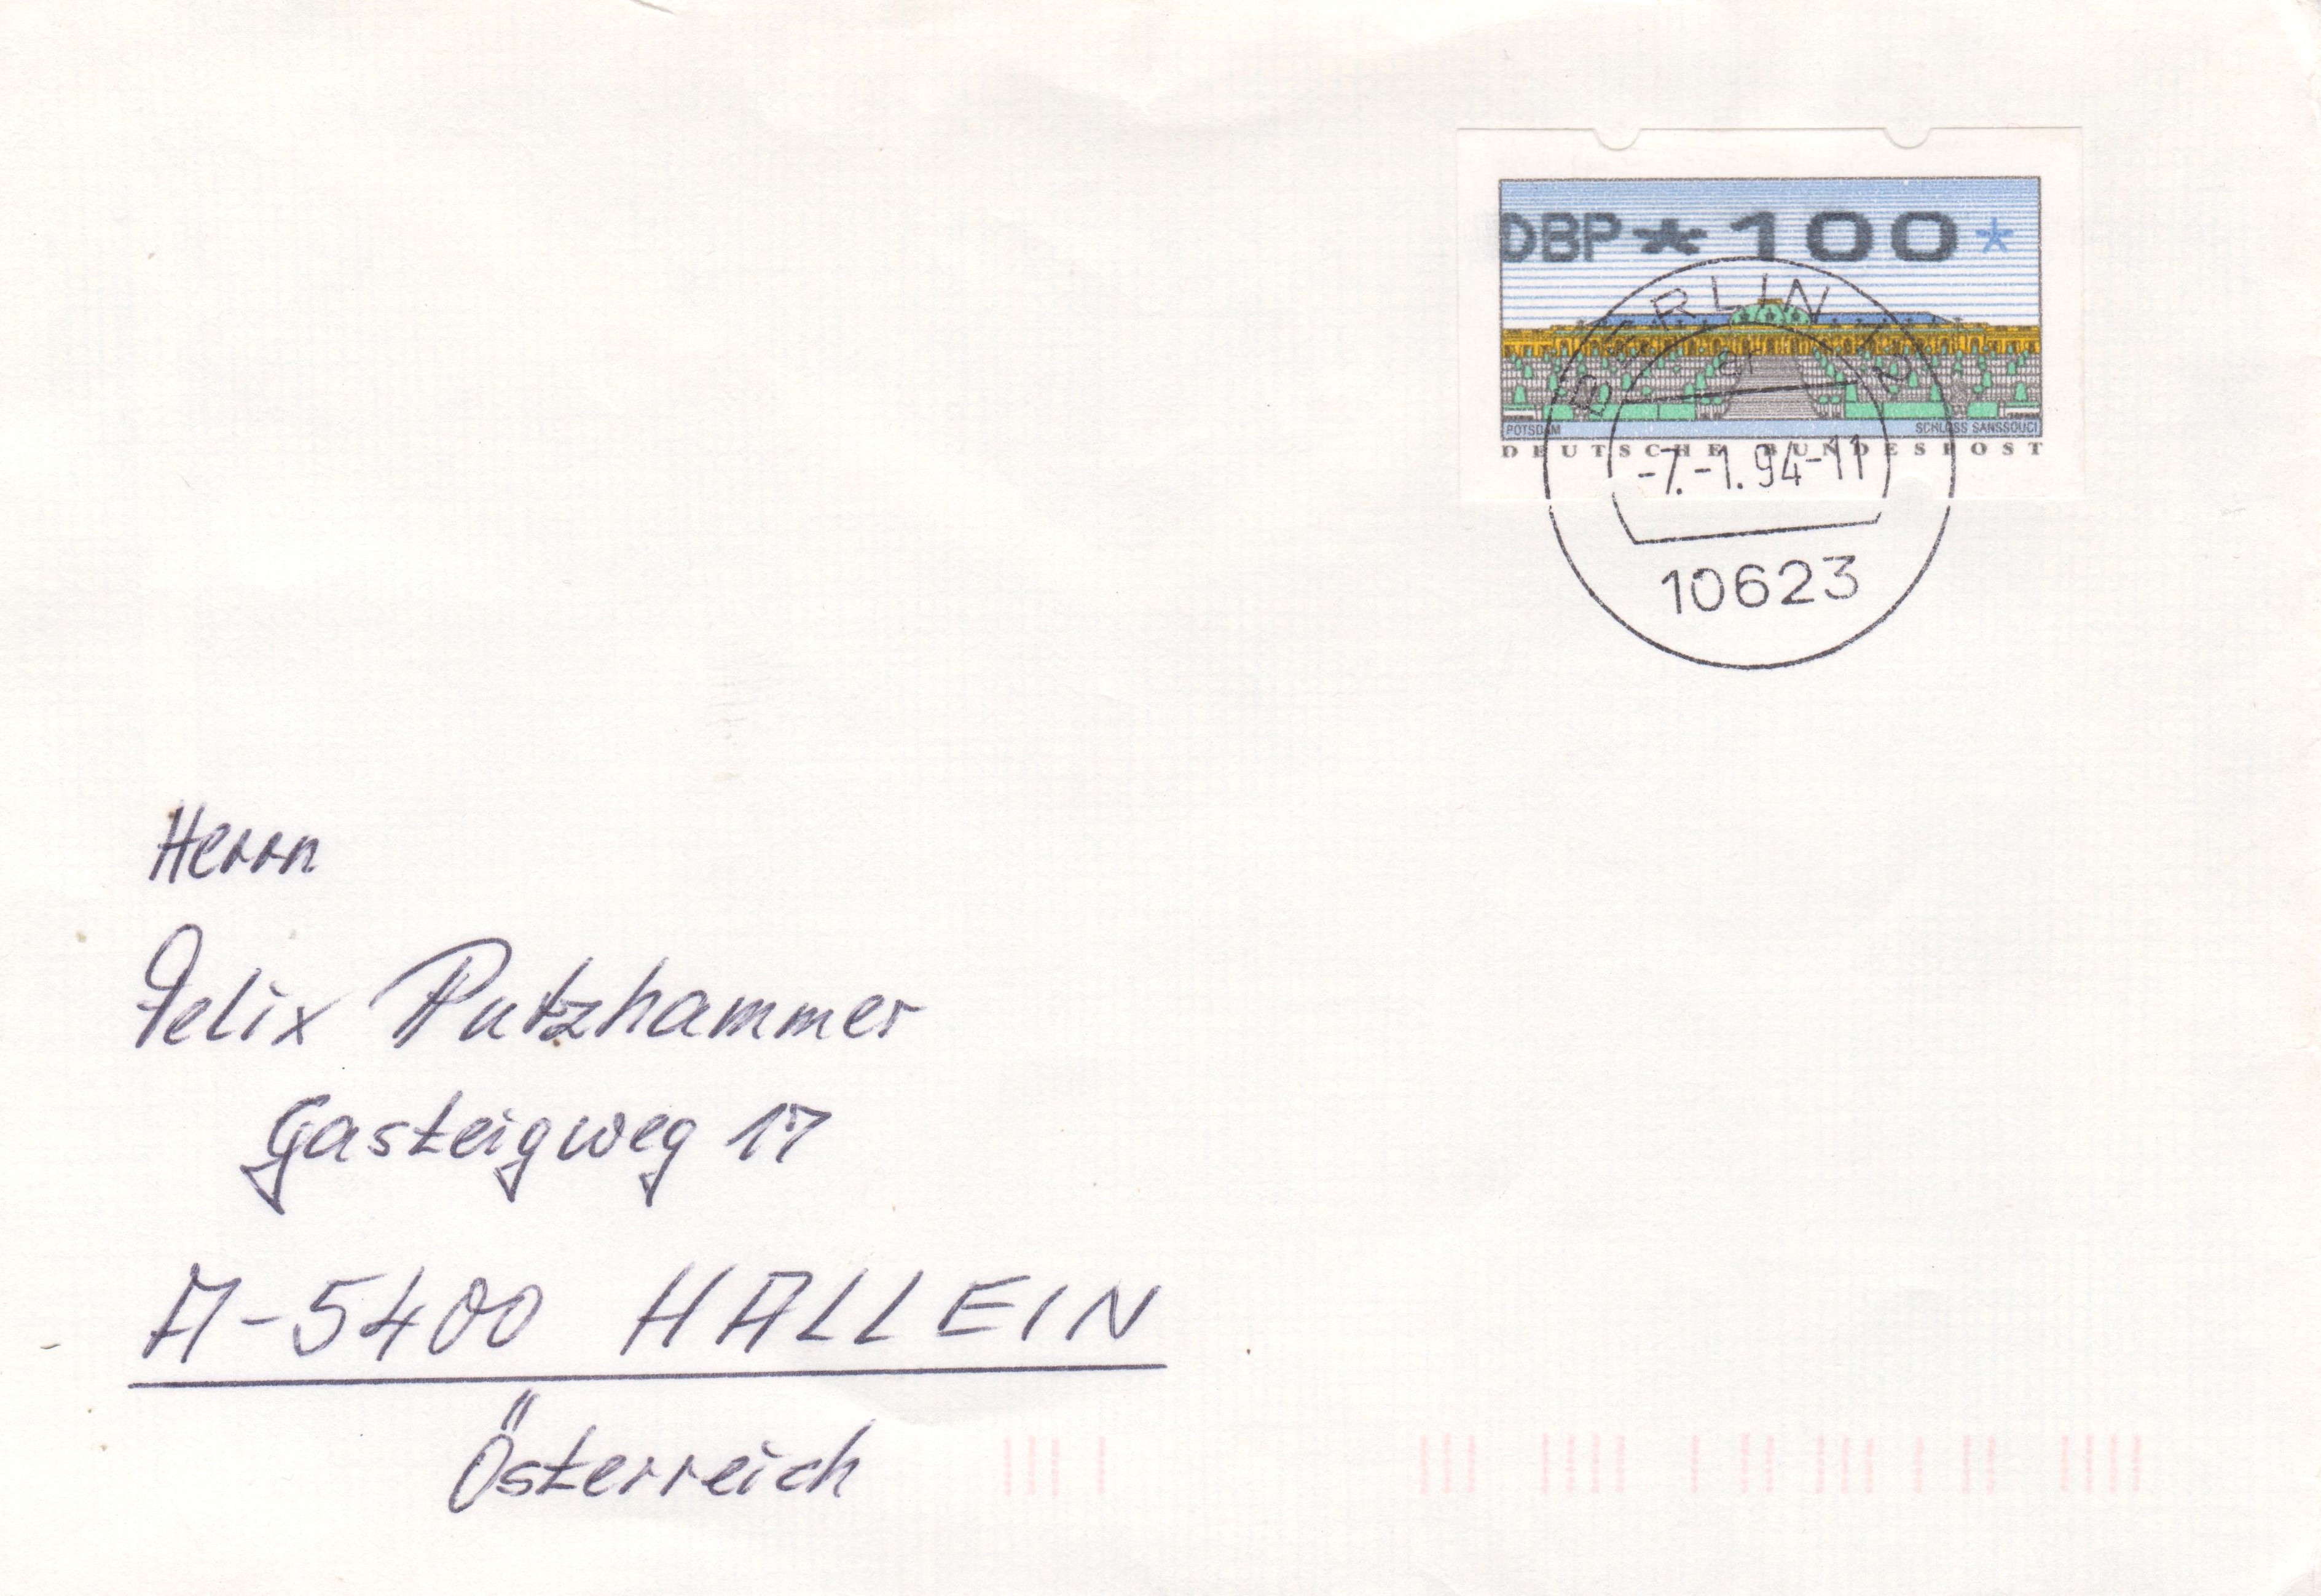 DBP*100*
POTSDAM SCHLOSS SANSSOUCI
DEUTSCHE BUNDESPOST
BERLIN 12
-7.-1.94-11
10623
Herrn
Felix Putzhammer
Gasteigweg 17
A-5400 HALLEIN
Österreich